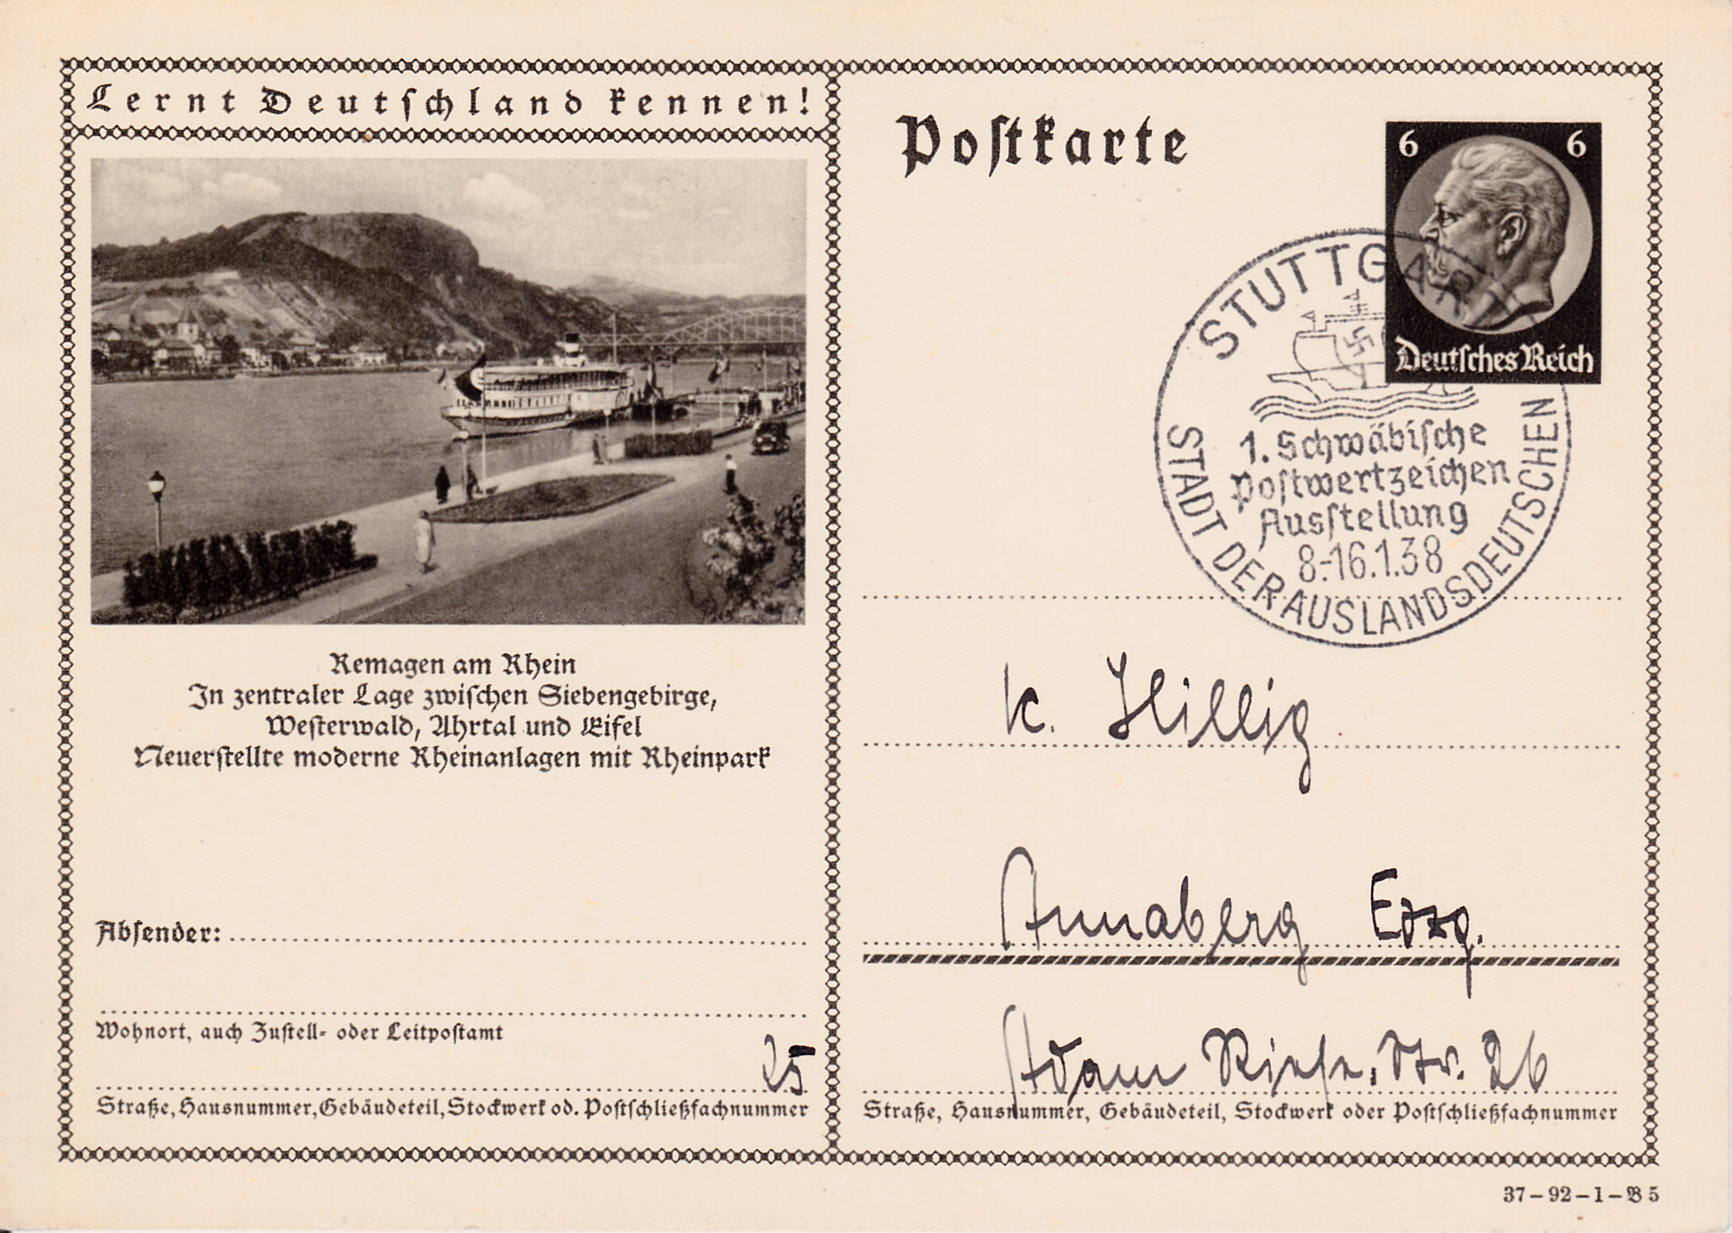 Lernt Deutschland kennen!
Remagen am Rhein
In zentraler Lage zwischen Siebengebirge,
Westerwald, Ahrtal und Eifel
Neuerstellte moderne Rheinanlagen mit Rheinpark
Absender:
Wohnort, auch Zustell- oder Leitpostamt
25
Straße, Hausnummer, Gebäudeteil, Stockwerk od. Postschließfachnummer
Postkarte
6 6
Deutsches Reich
STUTTGART
1. Schwäbische
Postwertzeichen
Ausstellung
8.-16.1.38
STADT DER AUSLANDSDEUTSCHEN
K. Hillig
Annaberg Erzg.
Adam Riese. Str. 26
Straße, Hausnummer, Gebäudeteil, Stockwerk oder Postschließfachnummer
37-92-1-B5